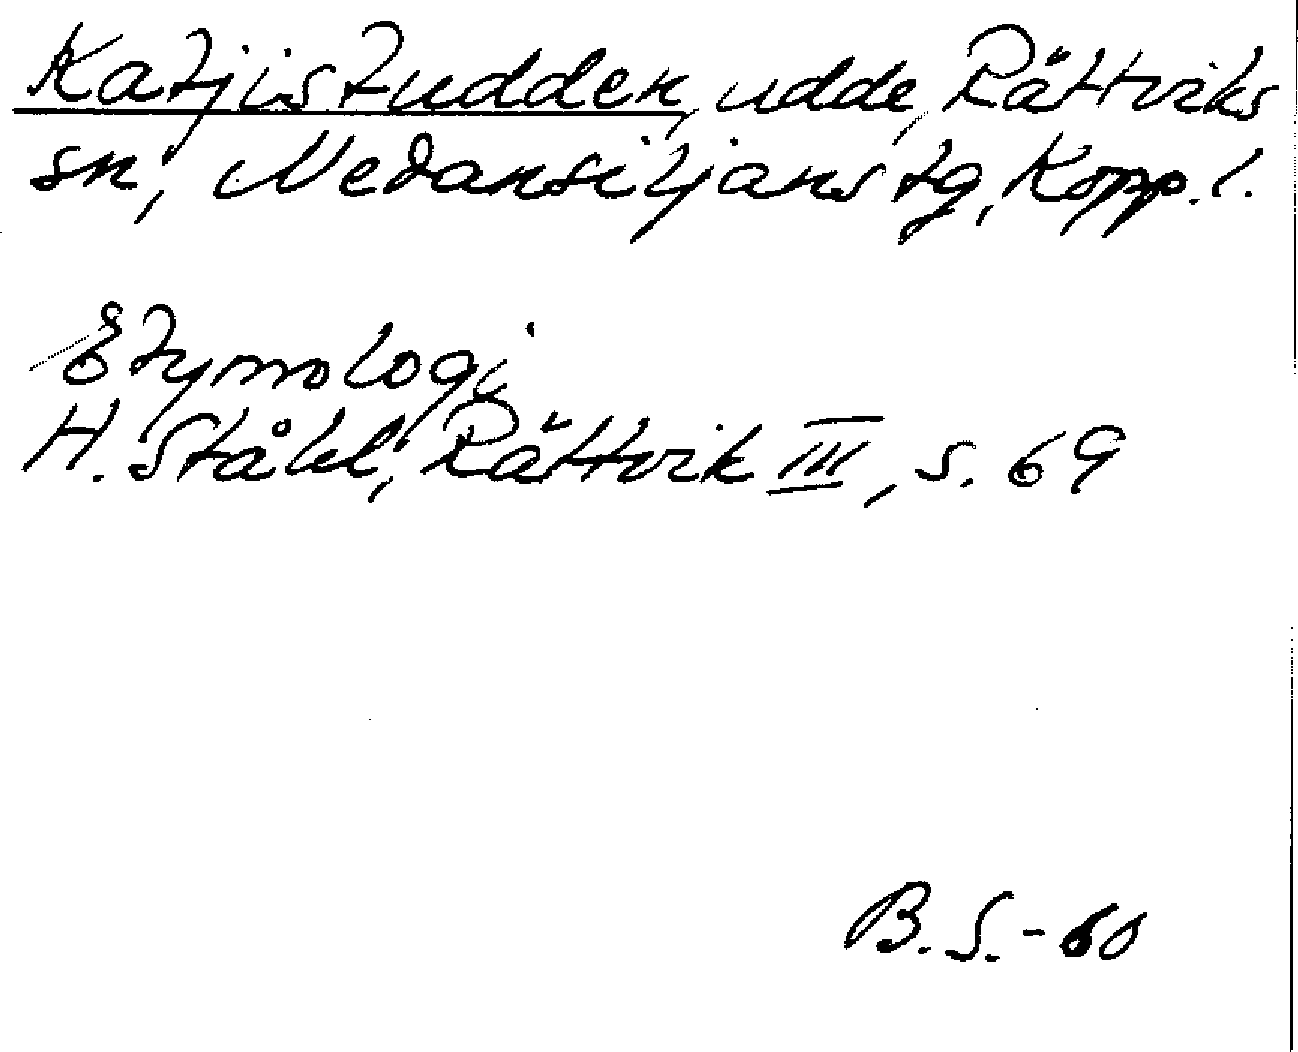 Katjistudden, udde, Rättviks
sn, Nedansiljans tg, Kopp. l.
Etymologi
H. Ståhl, Rättvik III, s. 69
B. S. - 60